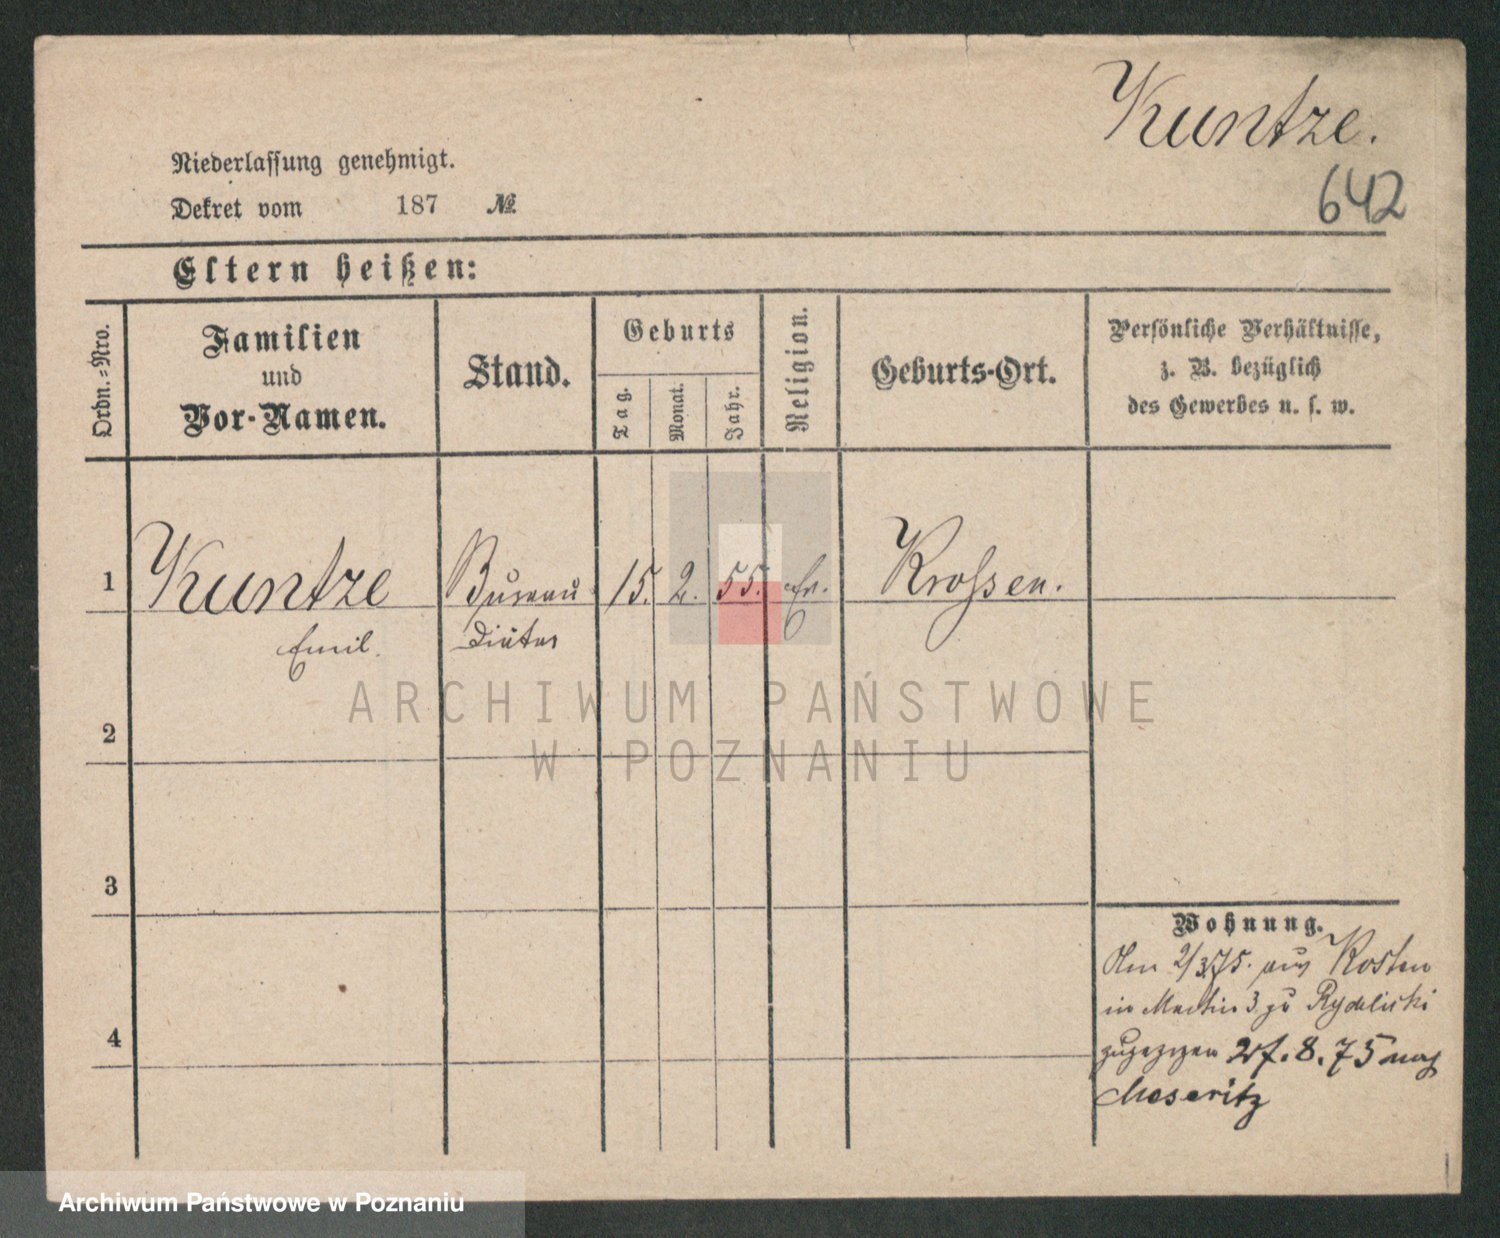 Kuntze.
642
Niederlassung genehmigt.
Dekret vom 187 №
Eltern heißen:
Ordn.-Nro.
Familien
und
Vor-Namen.
Stand.
Geburts
Tag.
Monat.
Jahr.
Religion.
Geburts-Ort.
Persönliche Verhältnisse,
z. B. bezüglich
des Gewerbes u. s. w.
1 Kuntze Bureau 15. 2. 55. Ev. Krossen.
Emil. Diätar
ARCHIWUM PAŃSTWOWE
W POZNANIU
2
3
4
Wohnung.
Am 2/3 75. aus Kosten
in Martin 3 zu Rydelicki
zugezogen 27.8.75 nach
Meseritz
Archiwum Państwowe w Poznaniu